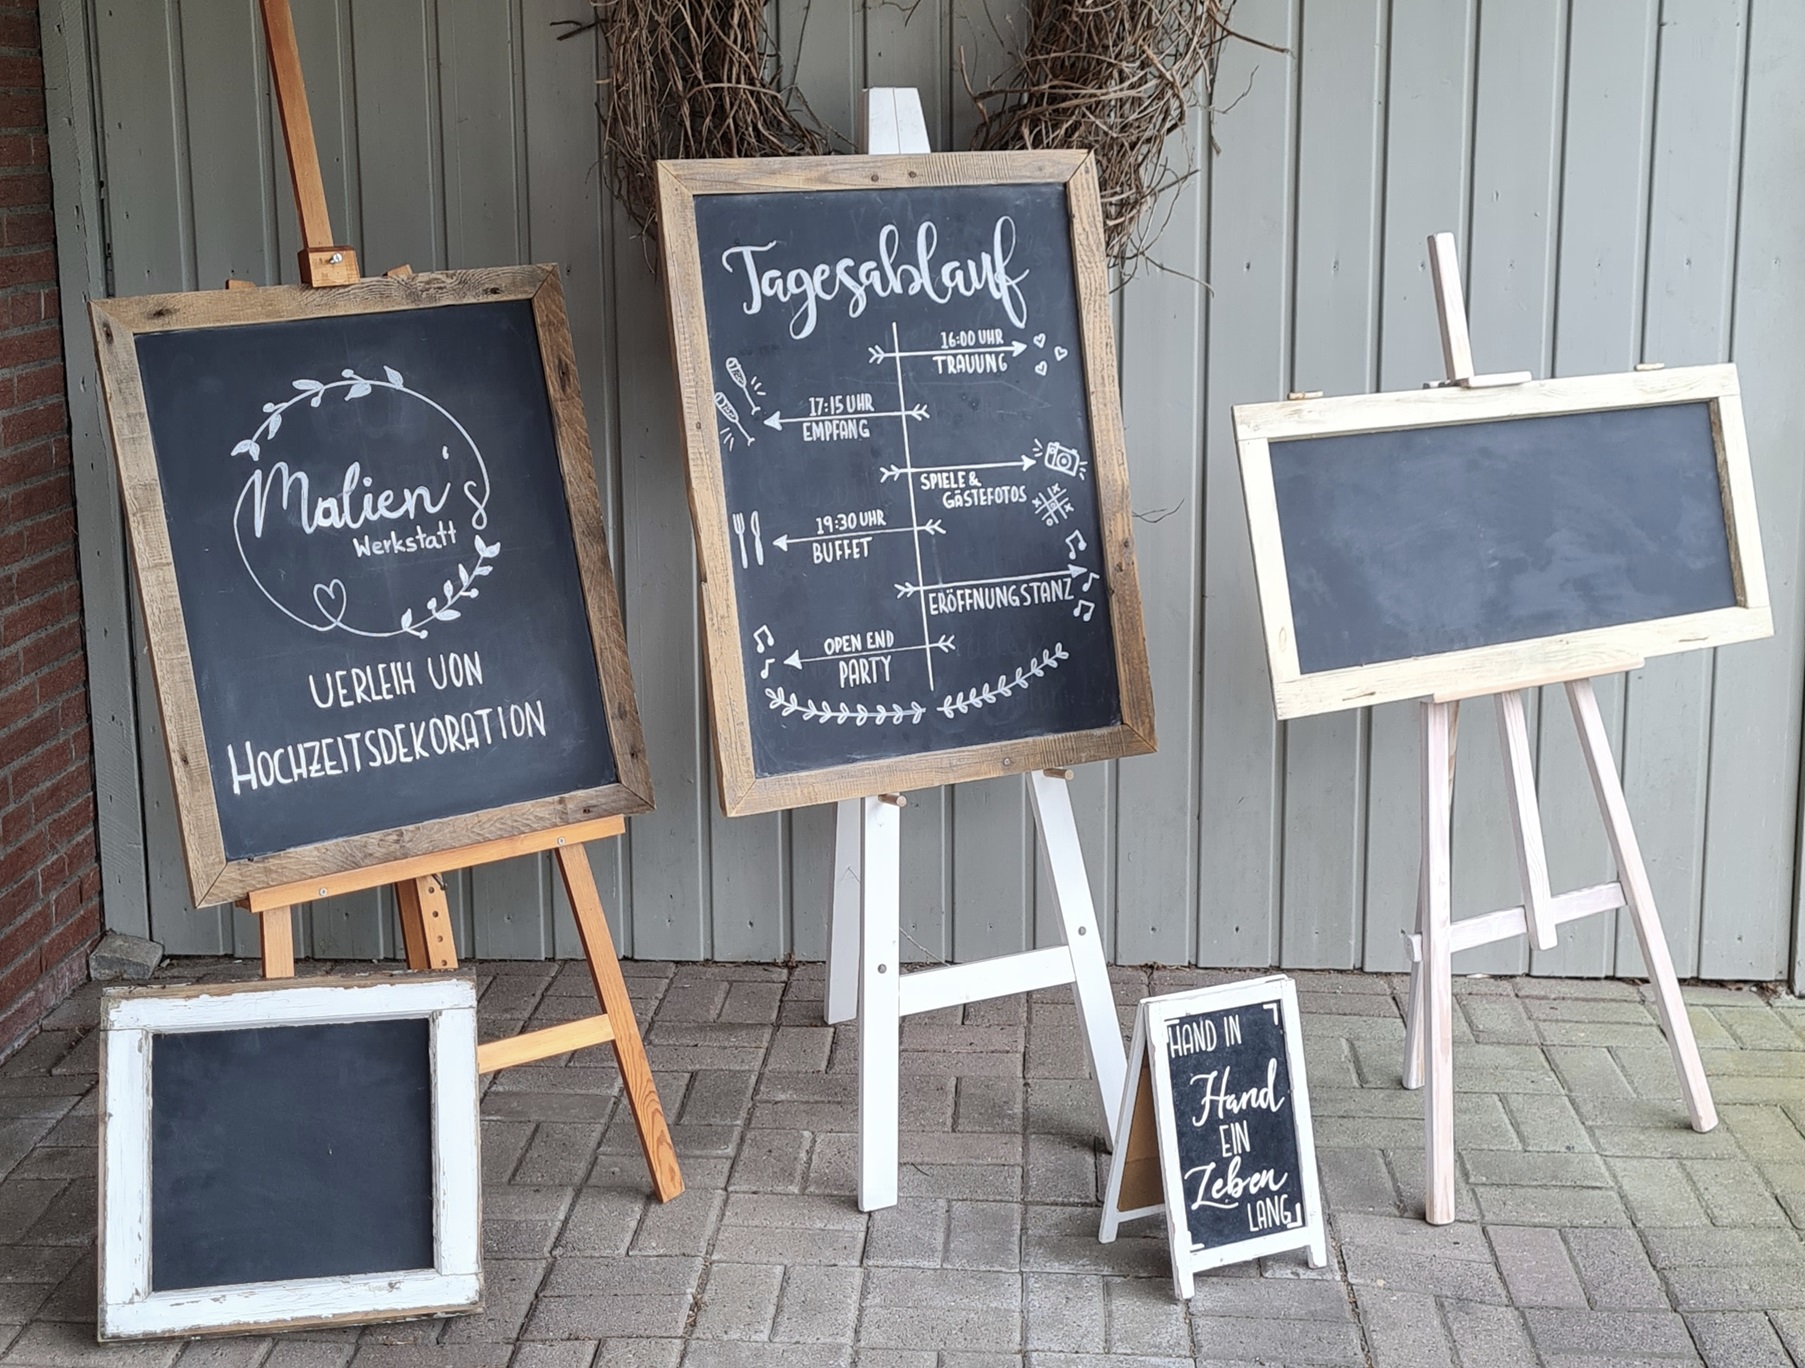 Malien's
Werkstatt
VERLEIH VON
HOCHZEITSDEKORATION
Tagesablauf
16:00 UHR
TRAUUNG
17:15 UHR
EMPFANG
SPIELE &
GÄSTEFOTOS
19:30 UHR
BUFFET
ERÖFFNUNGSTANZ
OPEN END
PARTY
HAND IN
Hand
EIN
Leben
LANG